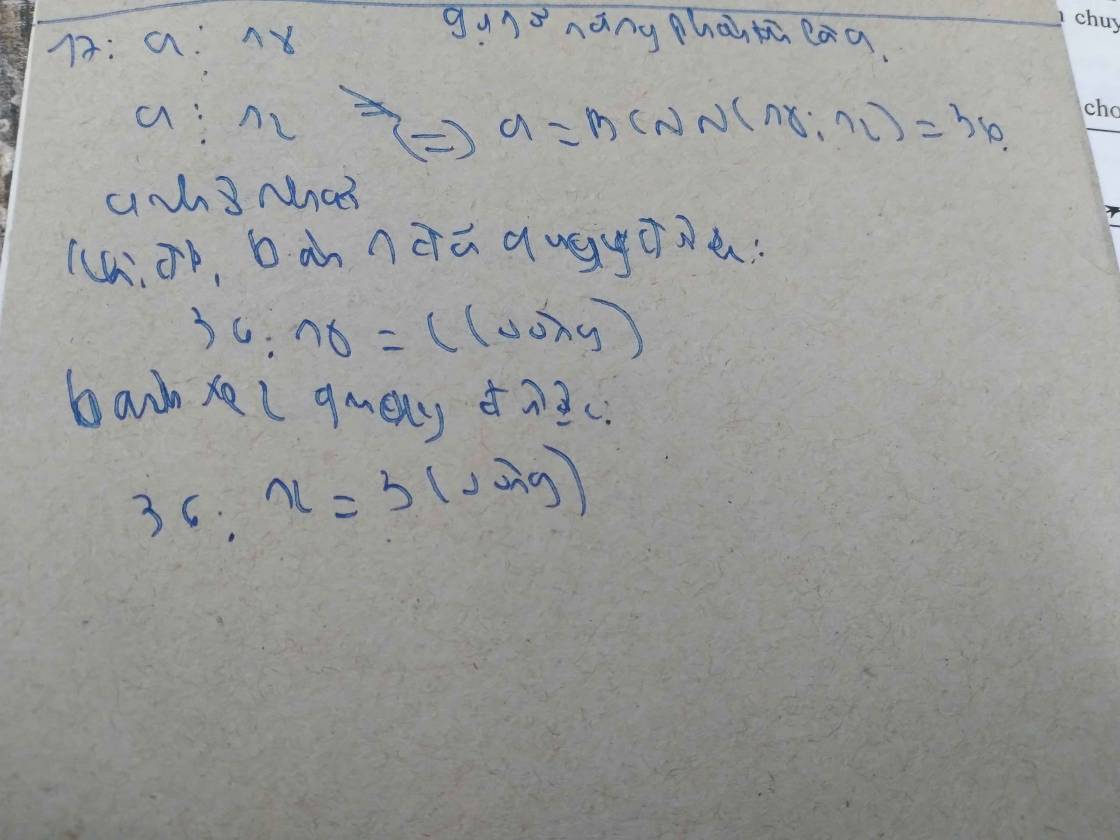 17: a ⋮ 18 gọi số răng phải tìm là a.
a ⋮ 12 => (=) a = BCNN(18; 12) = 36.
a nhỏ nhất
Khi đó, bánh 1 đã quay được:
36 : 18 = 2 (vòng)
bánh xe 2 quay được:
36 : 12 = 3 (vòng)
chuy
cho